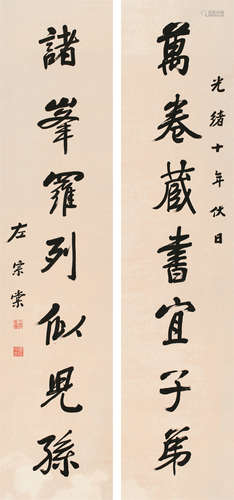 萬卷藏書宜子弟
光緒十年伏日
諸峯羅列似兒孫
左宗棠